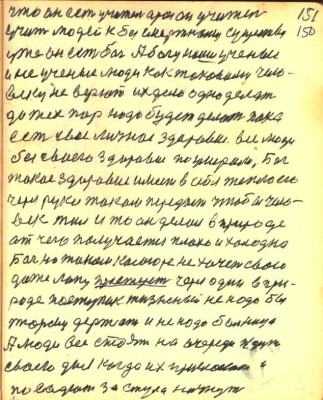 что он ест учител а раз он учител 151
учит людей к бессмертному существу 150
уже он ест бог А богу наши ученые
и не ученые люди как таковому чело-
веку не верят их дело одно делат
до тех пор надо будет делат пока
ест свое личное здоровие. все люди
без своего здоровие поумирали, Бог
такое здоровие имеет в себе тепло его
чери руки током передает чтоб чело-
век жил и то он делал в природе
от чего получается плохо и холодно
Бог но таком которое не хочет свого
даже чери один в при-
роде поступак жизненый не надо бы
тюрему держат и не надо болница
А люди все стоят на очереди ждут
своего дня когда их
посадят за стула начнут